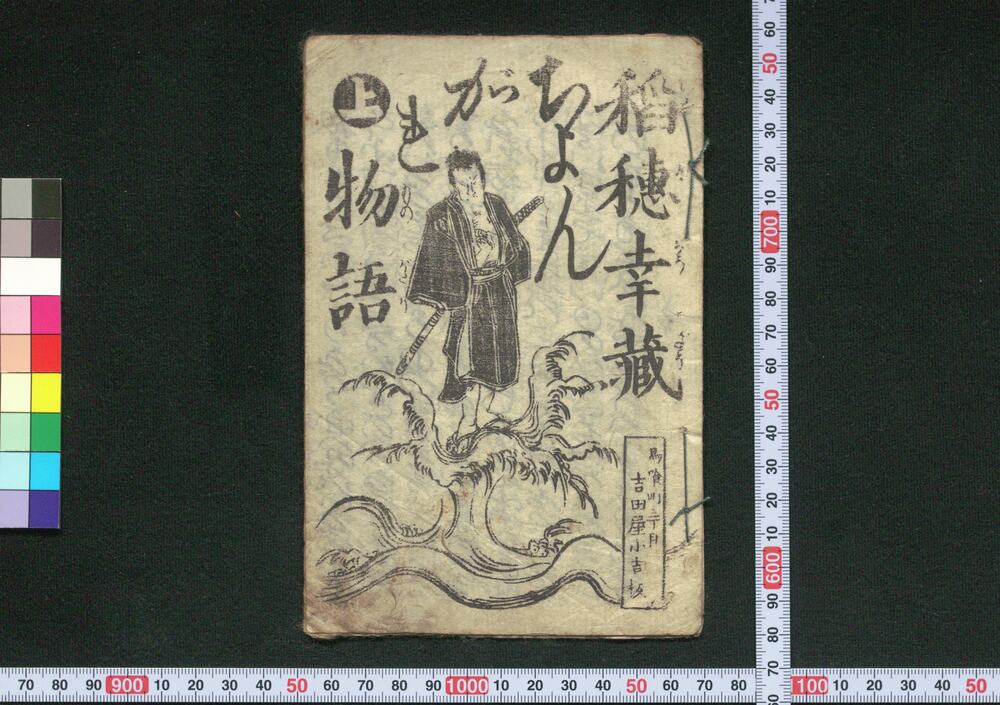 稻穗幸藏
ちよん
がれ
物語
上
馬喰町三丁目
吉田屋小吉板
70 80 90 900 10 20 30 40 50 60 70 80 90 1000 10 20 30 40 50 60 70 80
100 10 20 30 40 50
60 50 40 30 20 10 700 90 80 70 60 50 40 30 20 10 600 90 80 70